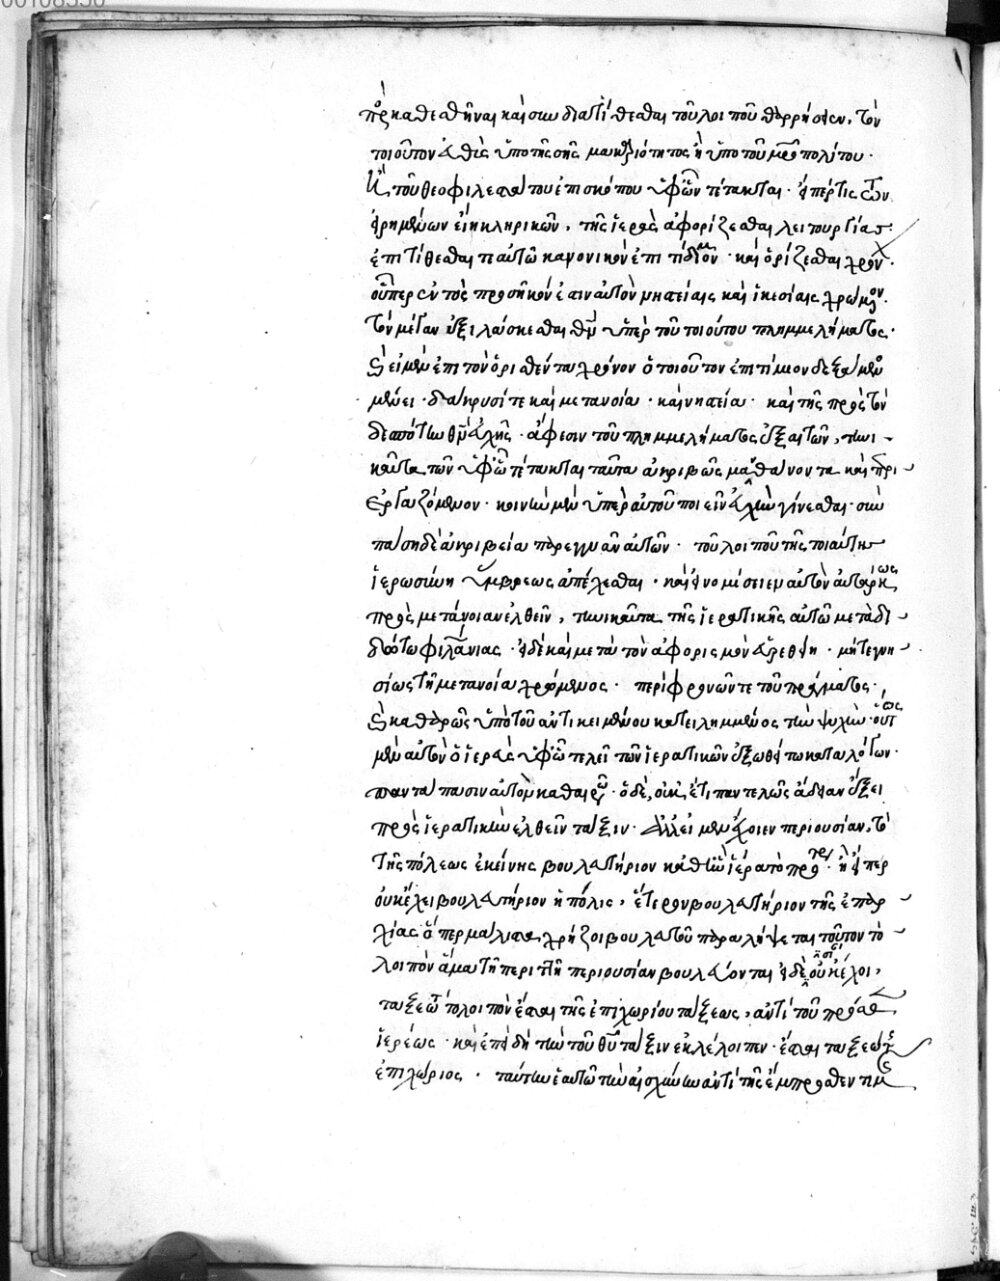 πρ̀ς καθεσθῆναι καὶ συνδιατίθεσθαι τοῦ λοιποῦ θαρρήσειεν, τὸν
τοιοῦτον εὐθὺς ὑπὸ τῆς σῆς μακαριότητος ἢ ὑπὸ τοῦ μητροπολίτου.
ἢ τοῦ θεοφιλεστάτου ἐπισκόπου ὑφ' ὧν τέτακται. εἴπερ τις τῶν
εἰρημένων εἴη κληρικῶν, τῆς ἱερᾶς ἀφορίζεσθαι λειτουργίας.
ἐπιτίθεσθαί τε αὐτῷ κανονικὸν ἐπιτίμιον. καὶ ὁρίζεσθαι χρόνον.
οὗπερ ἐντὸς προσῆκόν ἐστιν αὐτὸν νηστείαις καὶ ἱκεσίαις χρώμενον.
τὸν μέγαν ἐξιλάσκεσθαι θν ὑπὲρ τοῦ τοιούτου πλημμελήματος.
καὶ εἰ μὲν ἐπὶ τὸν ὁρισθέντα χρόνον ὁ τοιοῦτον ἐπιτίμιον δεξάμενος
μένει. δάκρυσί τε καὶ μετανοία. καὶ νηστεία. καὶ τῆς πρὸς τὸν
δεσπότην θν εὐχῆς. ἄφεσιν τοῦ πλημμελήματος ἐξαιτῶν, τηνι
καῦτα τὸν ὑφ' ὧ τέτακται ταῦτα ἀκριβῶς μανθάνοντα καὶ περι
εργαζόμενον. κοινὴν μὲν ὑπὲρ αὐτοῦ ποιεῖν εὐχὴν γίνεσθαι. σὺν
πάσῃ δὲ ἀκριβεία παρεγγυᾶν αὐτῶν. τοῦ λοιποῦ τῆς τοιαύτης
ἱερωσύνη ὕβρεως ἀπέχεσθαι. καὶ εἰ νομίσειεν αὐτὸν αὐτάρκως
πρὸς μετάνοιαν ἐλθεῖν, τηνικαῦτα τῆς ἱερατικῆς αὐτῷ μεταδι
δότω φιλανίας. εἰ δὲ καὶ μετὰ τὸν ἀφορισμὸν εὑρεθείη. μήτε γνη
σίως τῆ μετανοία χρώμενος. περιφρονῶν τε τοῦ πράγματος.
καὶ καθαρῶς ὑπὸ τοῦ ἀντικειμένου κατειλημμένος τὴν ψυχήν. οὕτως
μὲν αὐτὸν ὁ ἱερεὺς ὑφ' ὧ τελεῖ τῶν ἱερατικῶν ἐξωθείτω καταλόγων.
παντάπασιν αὐτὸν καθαιρῶν. ὁ δὲ, οὐκ ἔτι παντελῶς ἄδειαν ἕξει
πρὸς ἱερατικὴν ἐλθεῖν τάξιν. ἀλλ' εἰ μὲν ἔχοιεν περιουσίαν, τὸ
τῆς πόλεως ἐκείνης βουλευτήριον καθ' ἣν ἱερᾶτο πρότερον. ἢ εἴπερ
οὐκ ἔχει βουλευτήριον ἡ πόλις, ἕτερον βουλευτήριον τῆς ἐπαρ
χίας ὅπερ μάλιστα χρήζοι βουλευτοῦ παραλήψεται τοῦτον τὸ
λοιπὸν ἅμα τῆ περὶ τὴν περιουσίαν βουλεύοντα. εἰ δὲ οὐσίαν οὐκ ἔχοι,
ταξεώτης λοιπὸν ἔσται τῆς ἐπιχωρίου τάξεως, ἀντὶ τοῦ πρόσθεν
ἱερέως. καὶ ἐπειδὴ τὴν τοῦ θυ τάξιν ἐκλέλοιπεν. ἔσται ταξεώτης
ἐπιχώριος. ταύτην ἑαυτῷ τὴν αἰσχύνην ἀντὶ τῆς ἔμπροσθεν τιμῆς